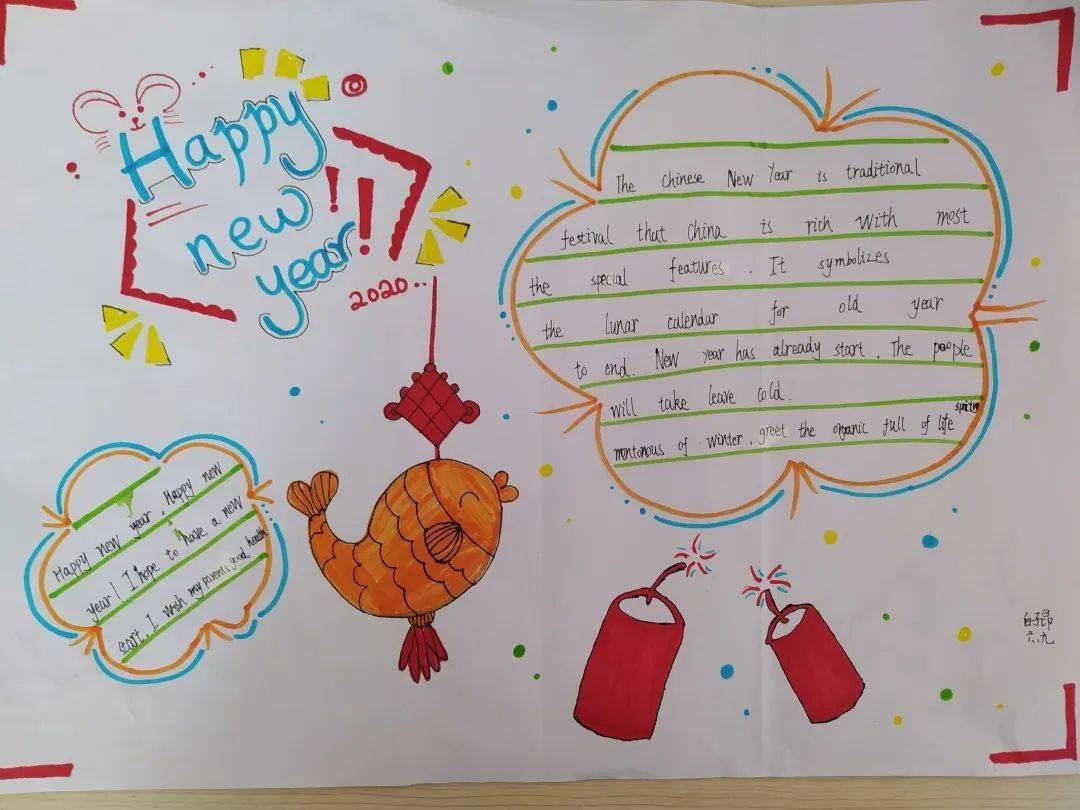 Happy
new
year!!!
2020..
The Chinese New Year is traditional
festival that China is rich with most
the special features. It symbolizes
the lunar calendar for old year
to end. New year has already start. The people
will take leave cold.
montonous of winter, greet the organic full of life spring
Happy new year, Happy new
year! I hope to have a new
start, I wish my parents good health
六九